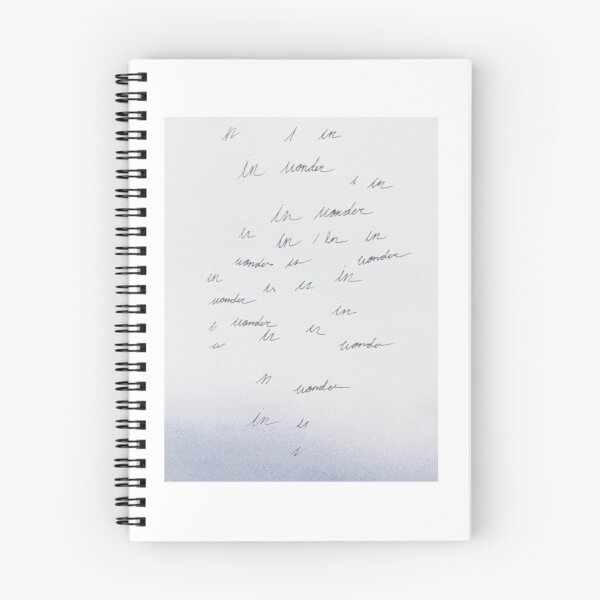 in
in wonder
i in
in wonder
in i in in
wonder is wonder
in is is in
wonder
in
wonder
in is
wonder
wonder
in is
i